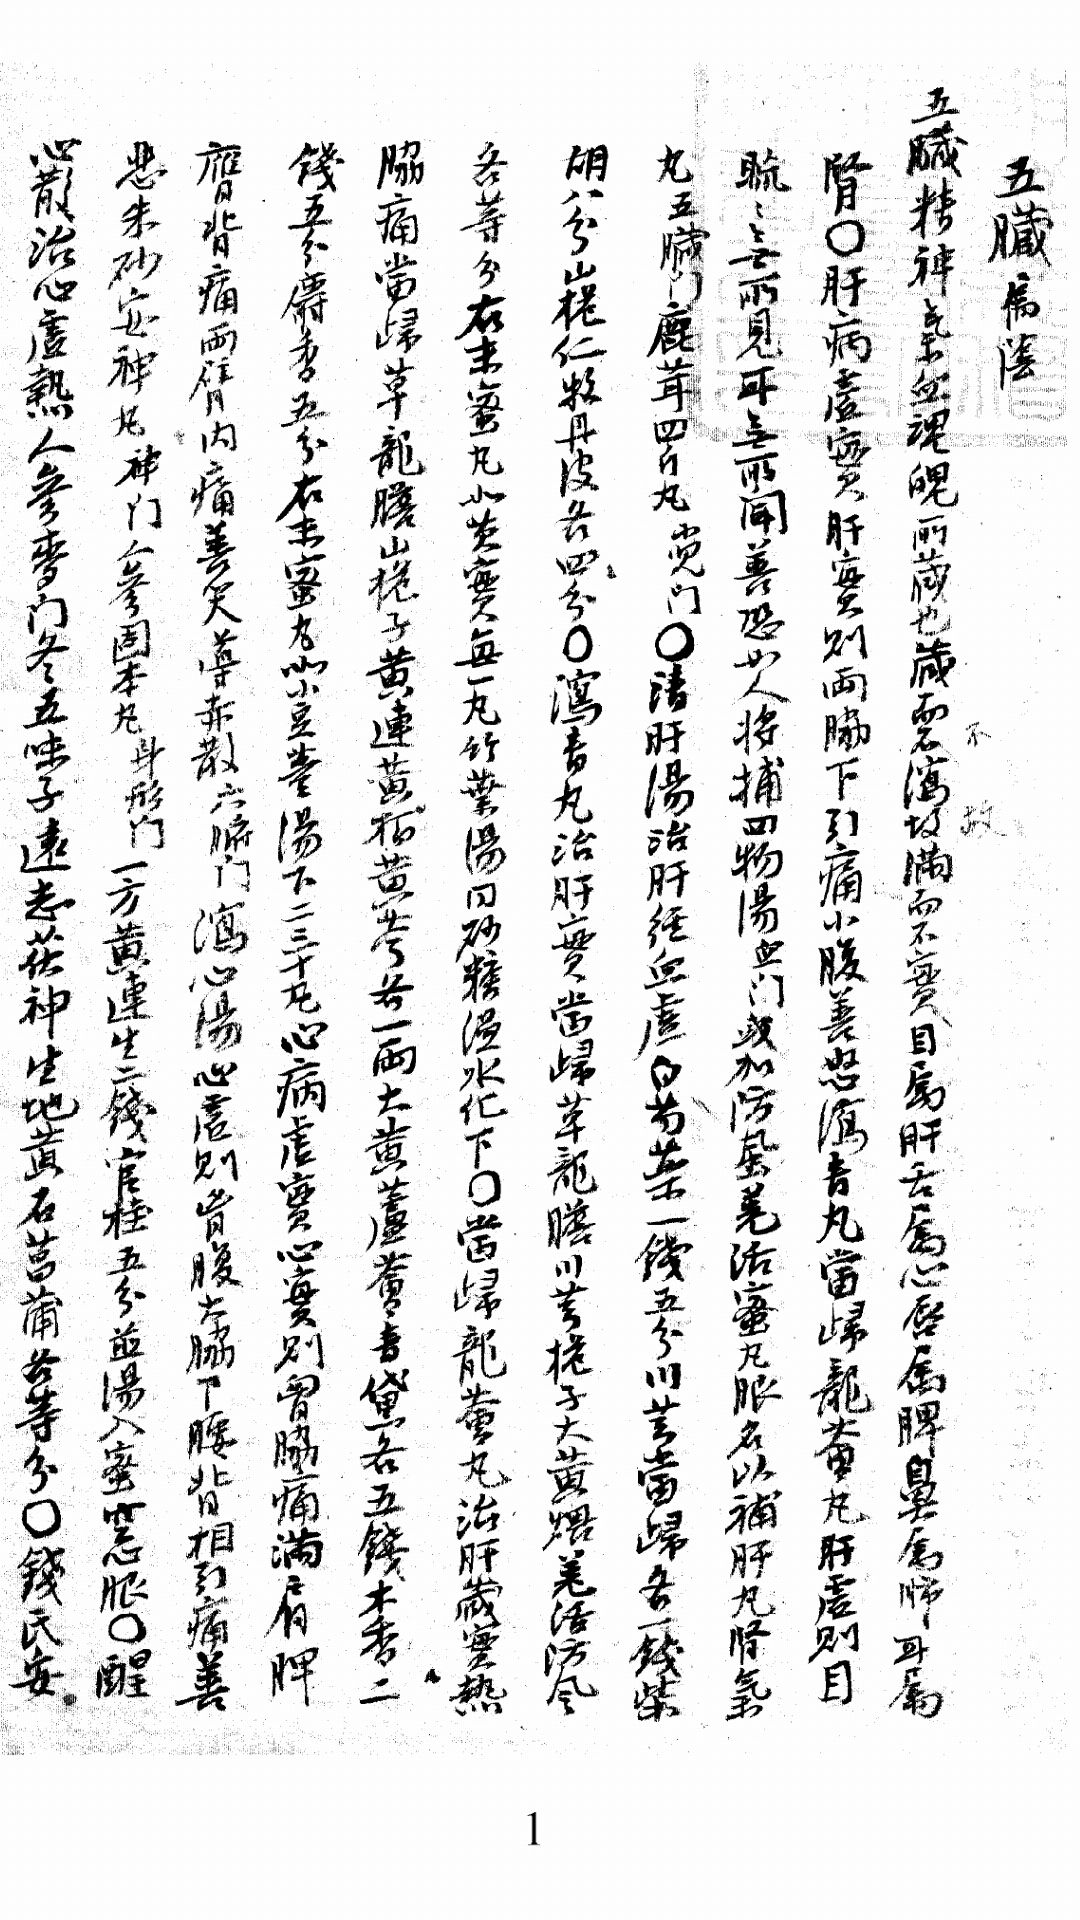 五臟屬陰
五臟精神氣血魂魄所藏也藏而不瀉故滿而不實目屬肝舌屬心唇屬脾鼻屬肺耳屬
不
故
腎〇肝病虛實肝實則兩脇下引痛小腹善怒瀉青丸當歸龍薈丸肝虛則目
䀮〻無所見耳無所聞善恐如人將捕四物湯血門或加防風羌活蜜丸服名以補肝丸腎氣
丸五臟門鹿茸四斤丸門〇淸肝湯治肝經血虛白芍藥一錢五分川芎當歸各一錢柴
胡八分山梔仁牧丹皮各四分〇瀉青丸治肝實當歸草龍膽川芎梔子大黃煨羌活防風
各等分右末蜜丸如芡實每一丸竹葉湯同砂糖溫水化下〇當歸龍薈丸治肝臟實熱
脇痛當歸草龍膽山梔子黃連黃栢黃芩各一兩大黃蘆薈靑黛各五錢木香二
錢五分麝香五分右末蜜丸如小豆薑湯下二三十丸心病虛實心實則胷脇痛滿肩胛
膺背痛兩臂內痛善笑導赤散六腑門瀉心湯心虛則胷腹大脇下腰背相引痛善
悲朱砂安神丸神門人參固本丸身形門一方黃連生二錢官桂五分並湯入蜜空心服〇醒
心散治心虛熱人參麥門冬五味子遠志茯神生地黃石菖蒲各等分〇錢氏安
1